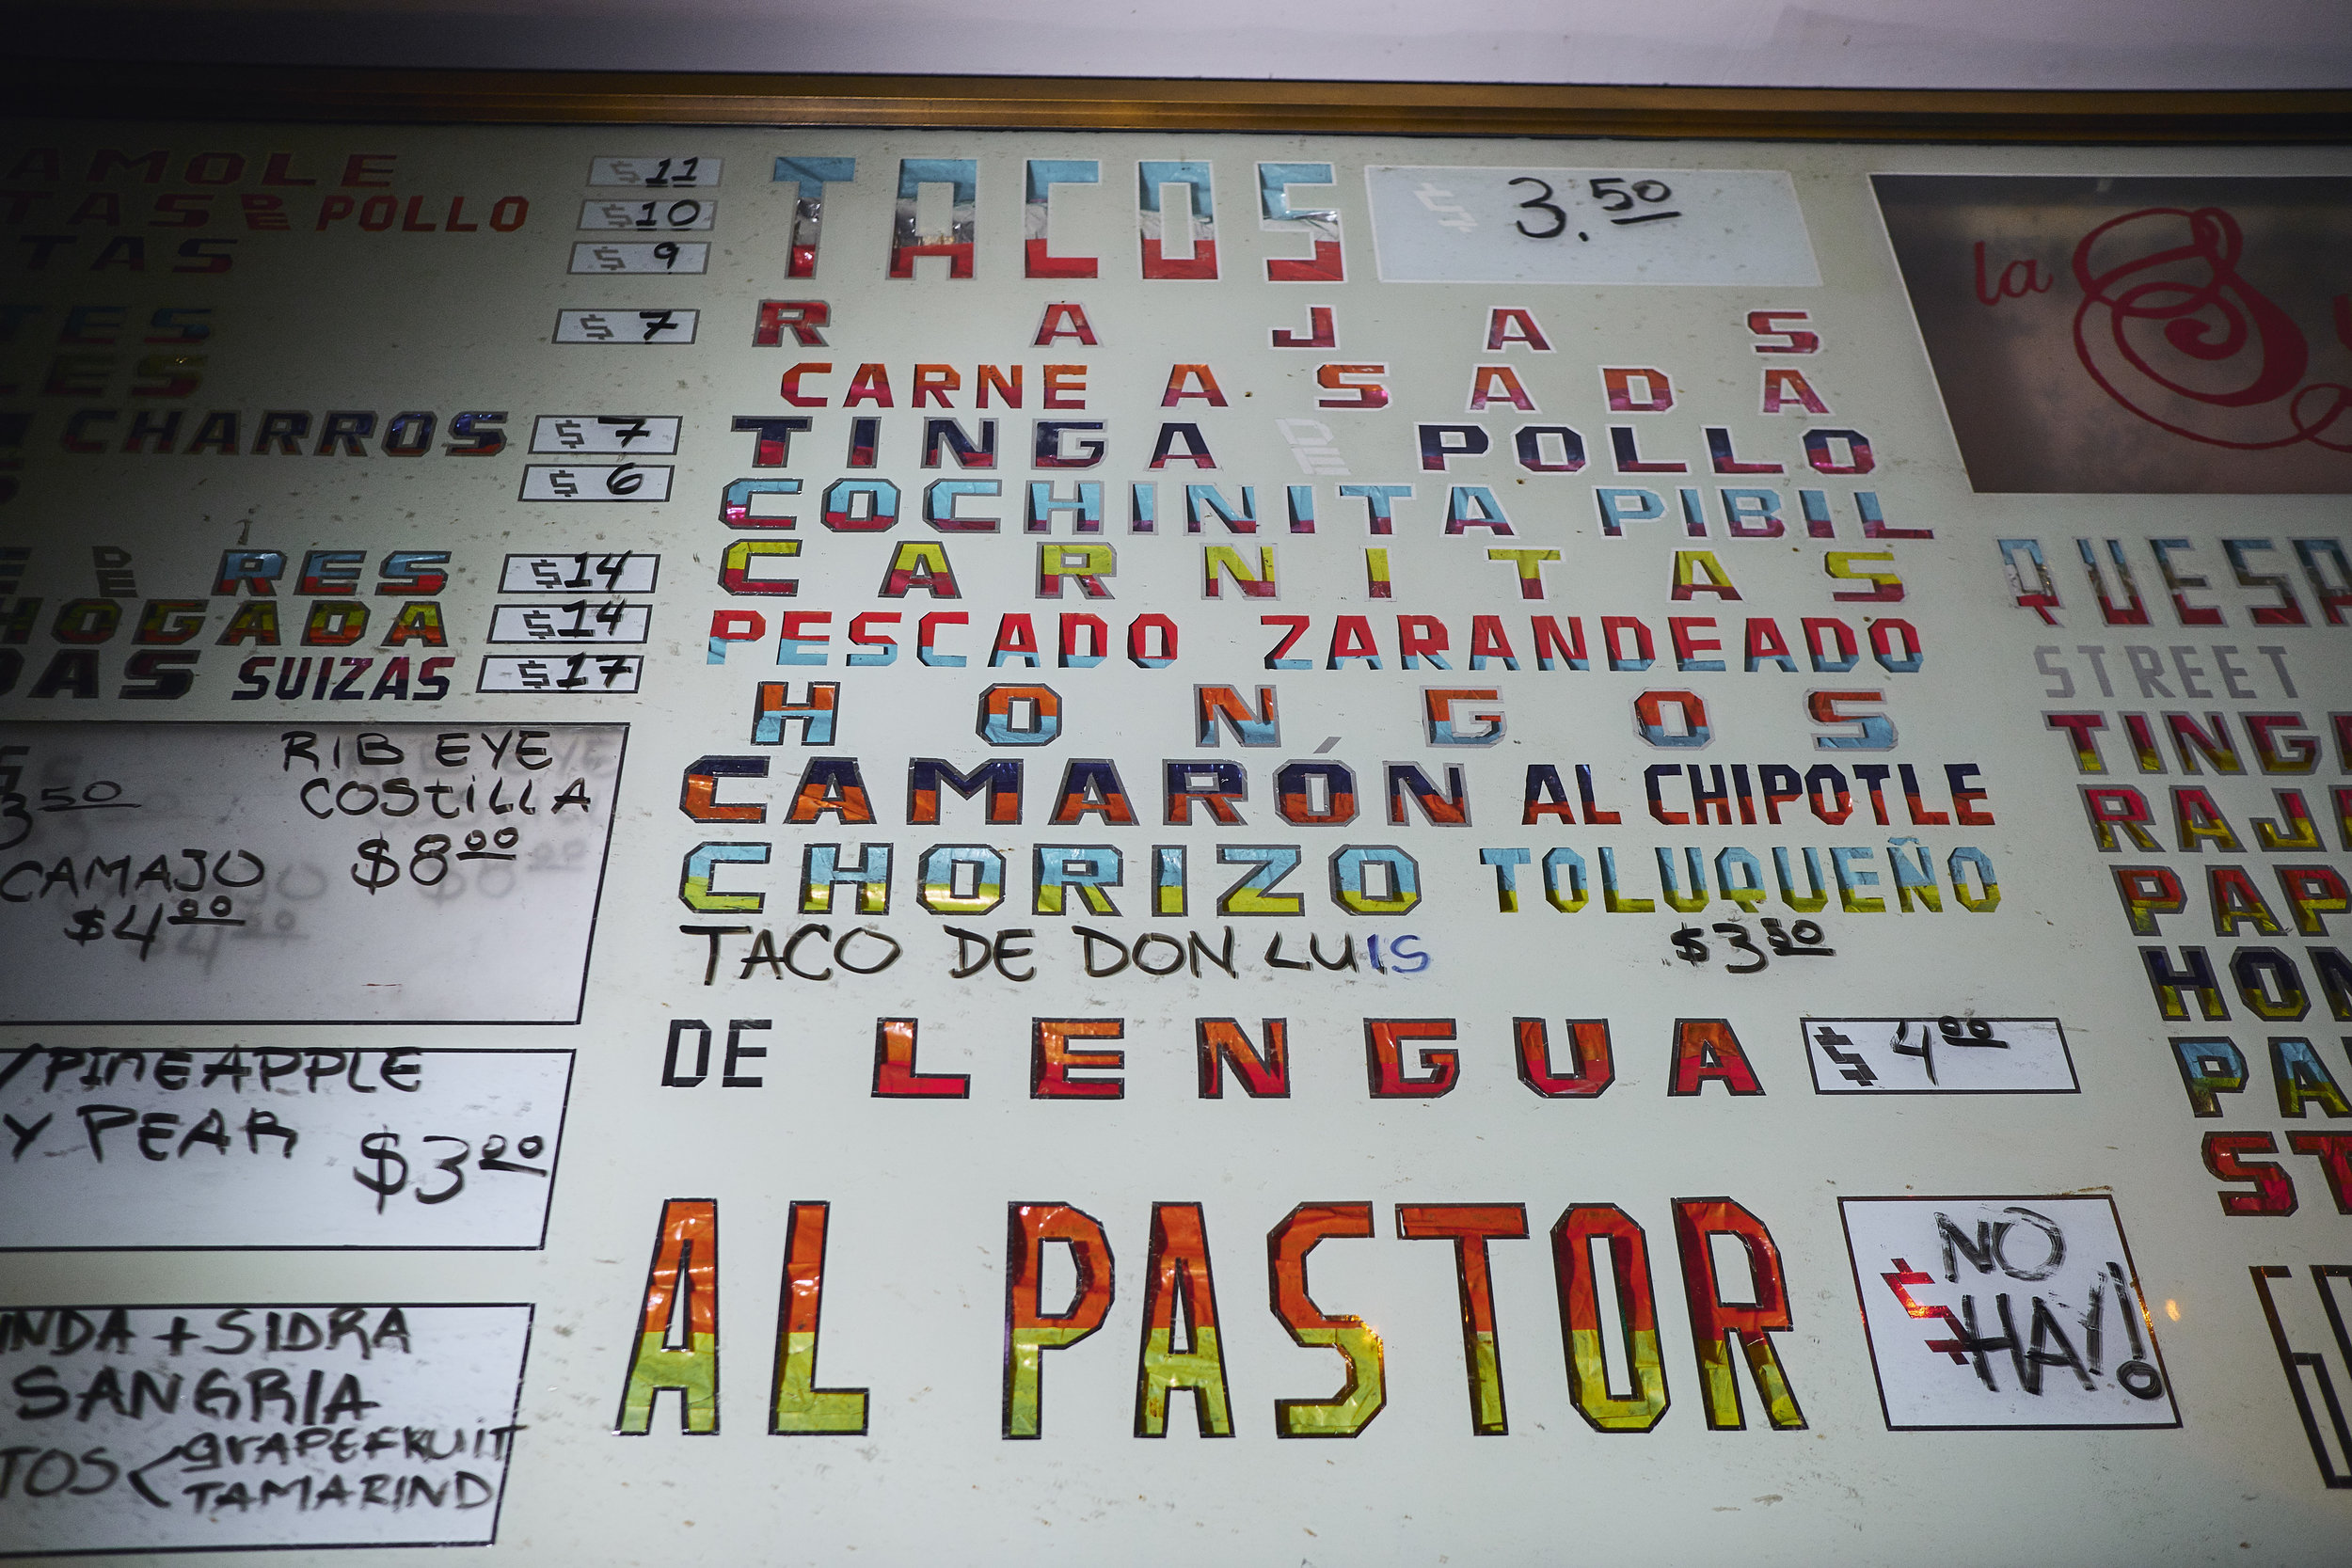 POLLO $11
$10
$9
$7
CHARROS $7
$6
DE RES $14
$14
SUIZAS $17
RIB EYE
COSTILLA
3.50
$8.00
CAMAJO
$4.00
/PINEAPPLE
Y PEAR $3.00
+ SIDRA
SANGRIA
GRAPEFRUIT
TAMARIND
TACOS $3.50
RAJAS
CARNE ASADA
TINGA DE POLLO
COCHINITA PIBIL
CARNITAS
PESCADO ZARANDEADO
HONGOS
CAMARÓN AL CHIPOTLE
CHORIZO TOLUQUEÑO
TACO DE DON LUIS $3.50
DE LENGUA $4.00
AL PASTOR $ NO HAY!
la
STREET